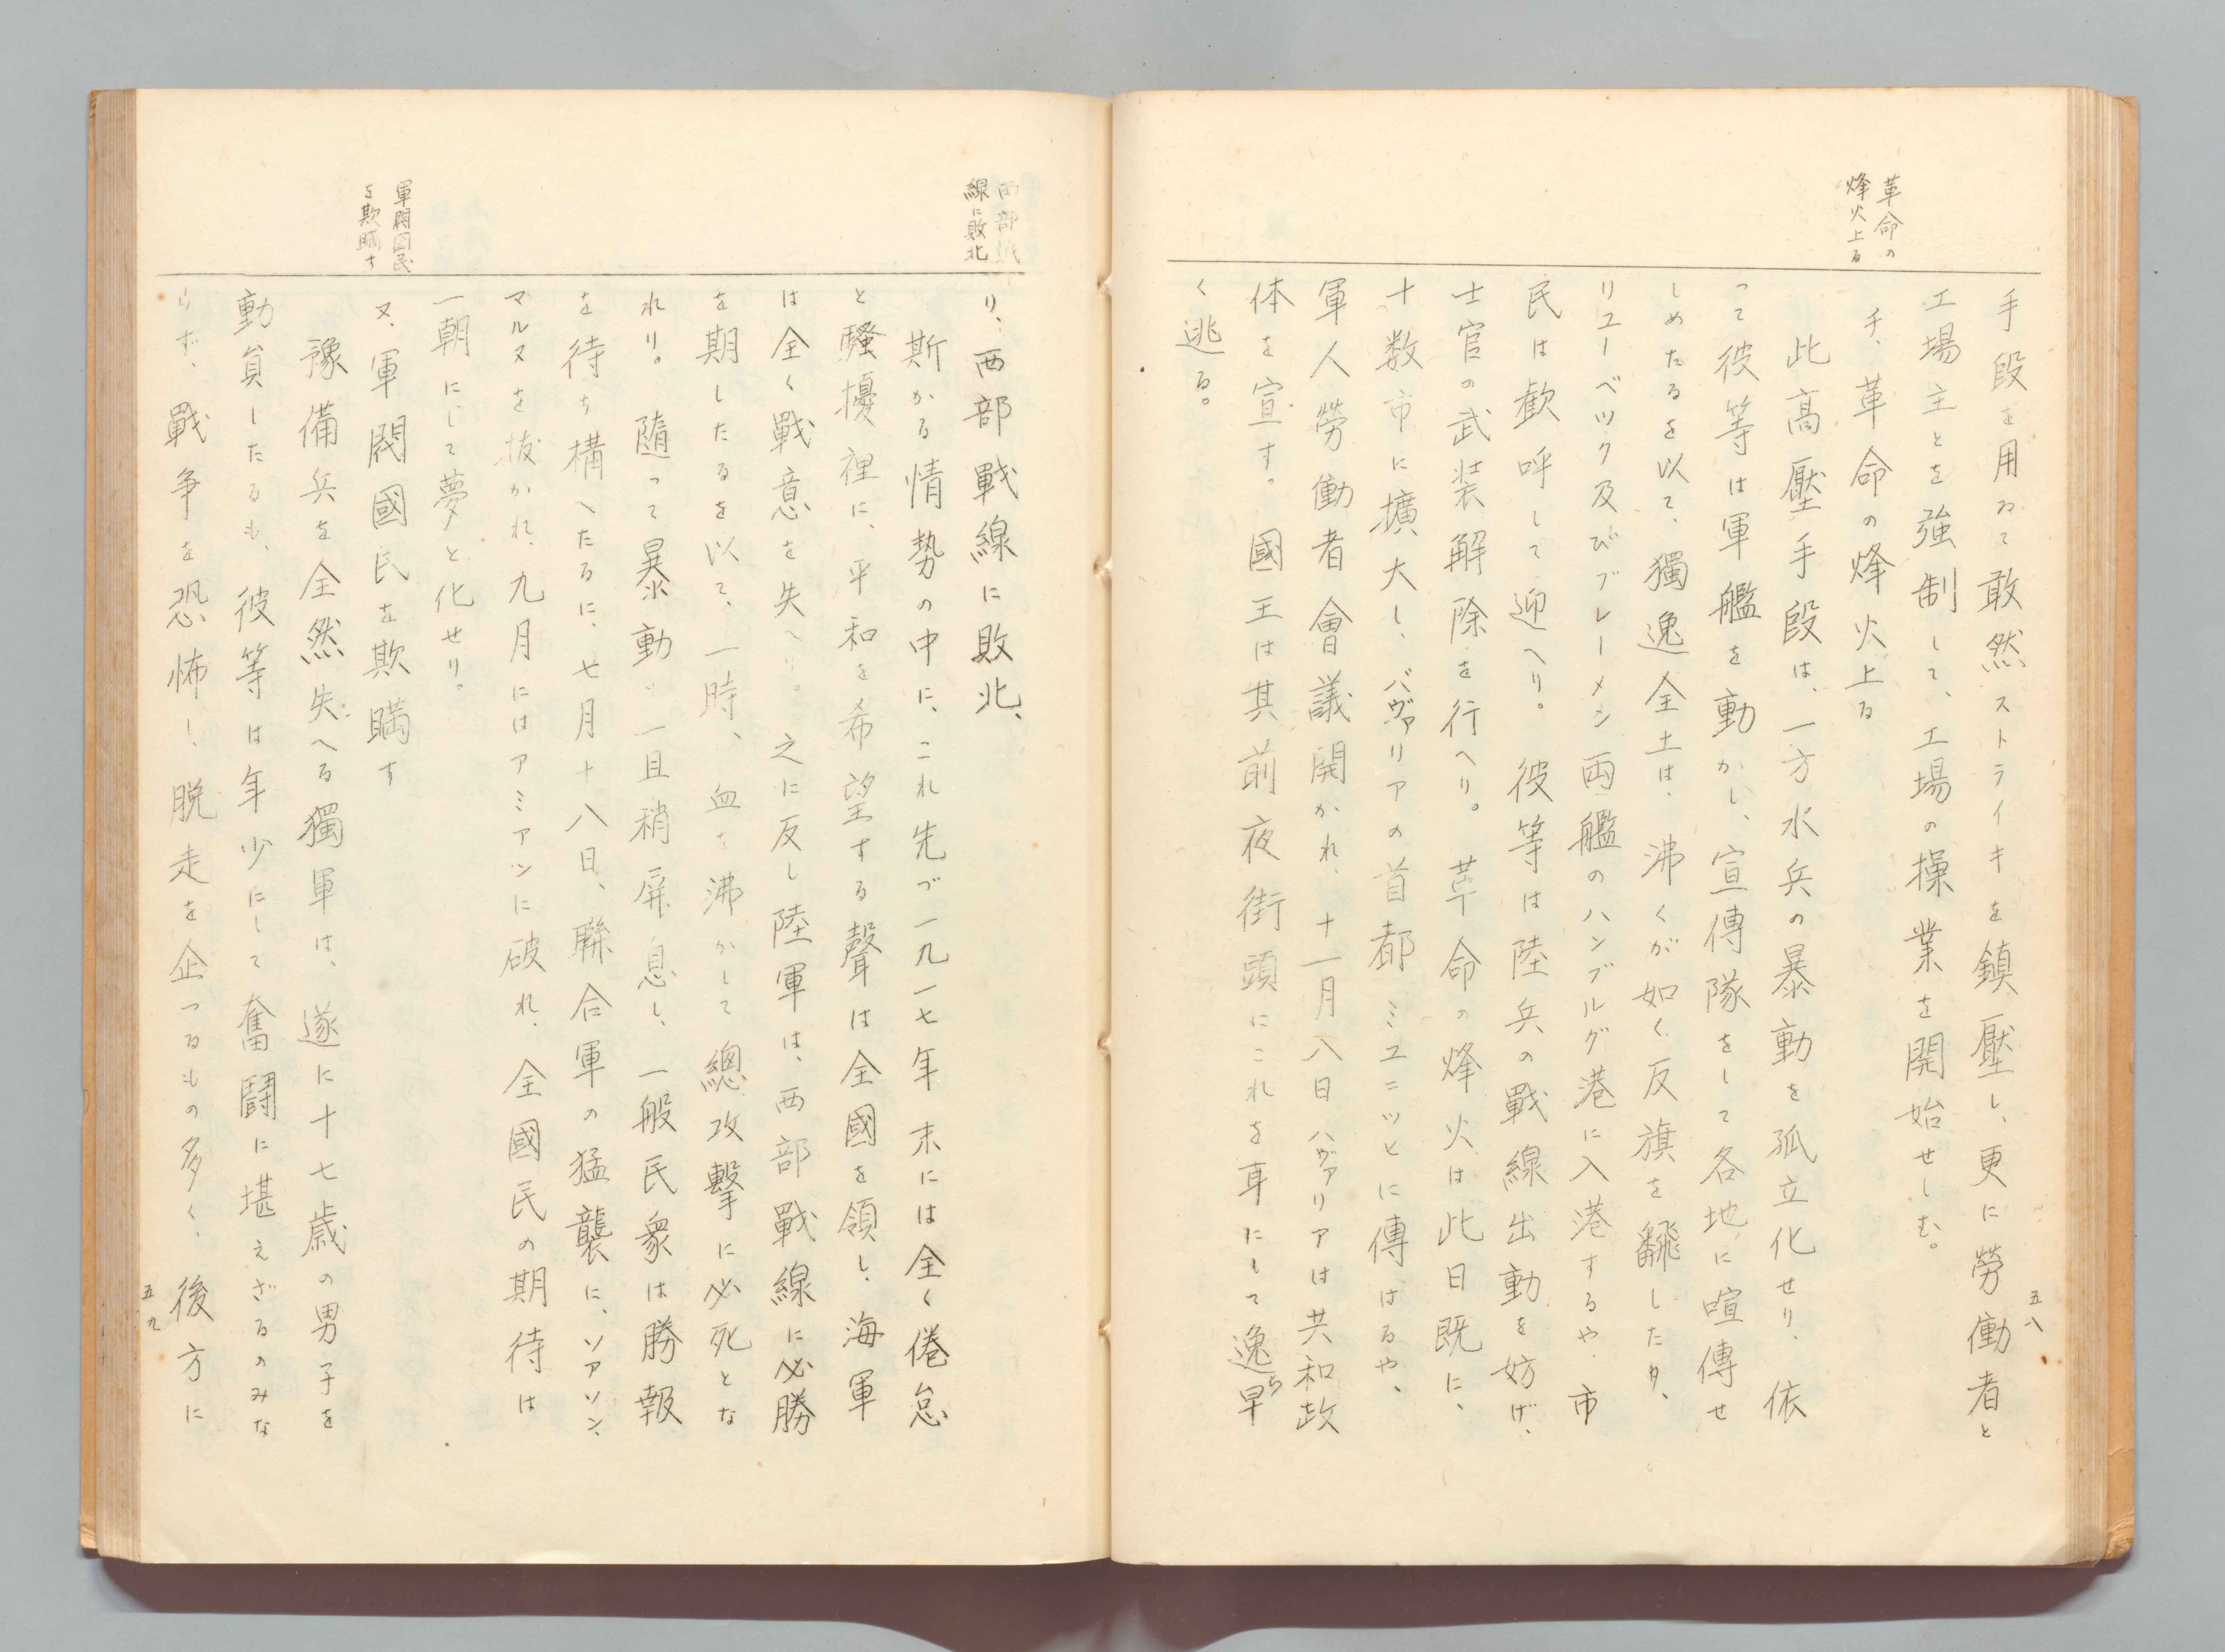 革命の
烽火上る
手段を用ゐて敢然ストライキを鎮壓し、更に勞働者と
工場主とを強制して、工場の操業を開始せしむ。
チ、革命の烽火上る
此高壓手段は、一方水兵の暴動を孤立化せり、依
って彼等は軍艦を動かし、宣傳隊をして各地に喧傳せ
しめたるを以て、獨逸全土は、沸くが如く反旗を飜したり、
リユーベツク及びブレーメン両艦のハンブルグ港に入港するや、市
民は歓呼して迎へり。彼等は陸兵の戰線出動を妨げ、
士官の武装解除を行へり。革命の烽火は此日既に、
十数市に擴大し、バヴァリアの首都ミユニツヒに傳はるや、
軍人勞働者會議開かれ、十一月八日バヴァリアは共和政
体を宣す。國王は其前夜街頭にこれを耳にして逸ち早
く逃る。
五八
西部戰
線に敗北
り、西部戰線に敗北、
斯かる情勢の中に、これ先づ一九一七年末には全く倦怠
と騒擾裡に、平和を希望する聲は全國を領し、海軍
は全く戰意を失へり。之に反し陸軍は、西部戰線に必勝
を期したるを以て、一時、血を沸かして總攻擊に必死とな
れり。随って暴動は一旦稍屏息し、一般民衆は勝報
を待ち構へたるに、七月十八日、聯合軍の猛襲に、ソアソン、
マルヌを抜かれ、九月にはアミアンに破れ、全國民の期待は
一朝にして夢と化せり。
軍閥国民
を欺瞞す
ヌ、軍閥國民を欺瞞す
豫備兵を全然失へる獨軍は、遂に十七歳の男子を
動員したるも、彼等は年少にして奮鬪に堪えざるのみな
らず、戰争を恐怖し、脱走を企つるもの多く、後方に
五九